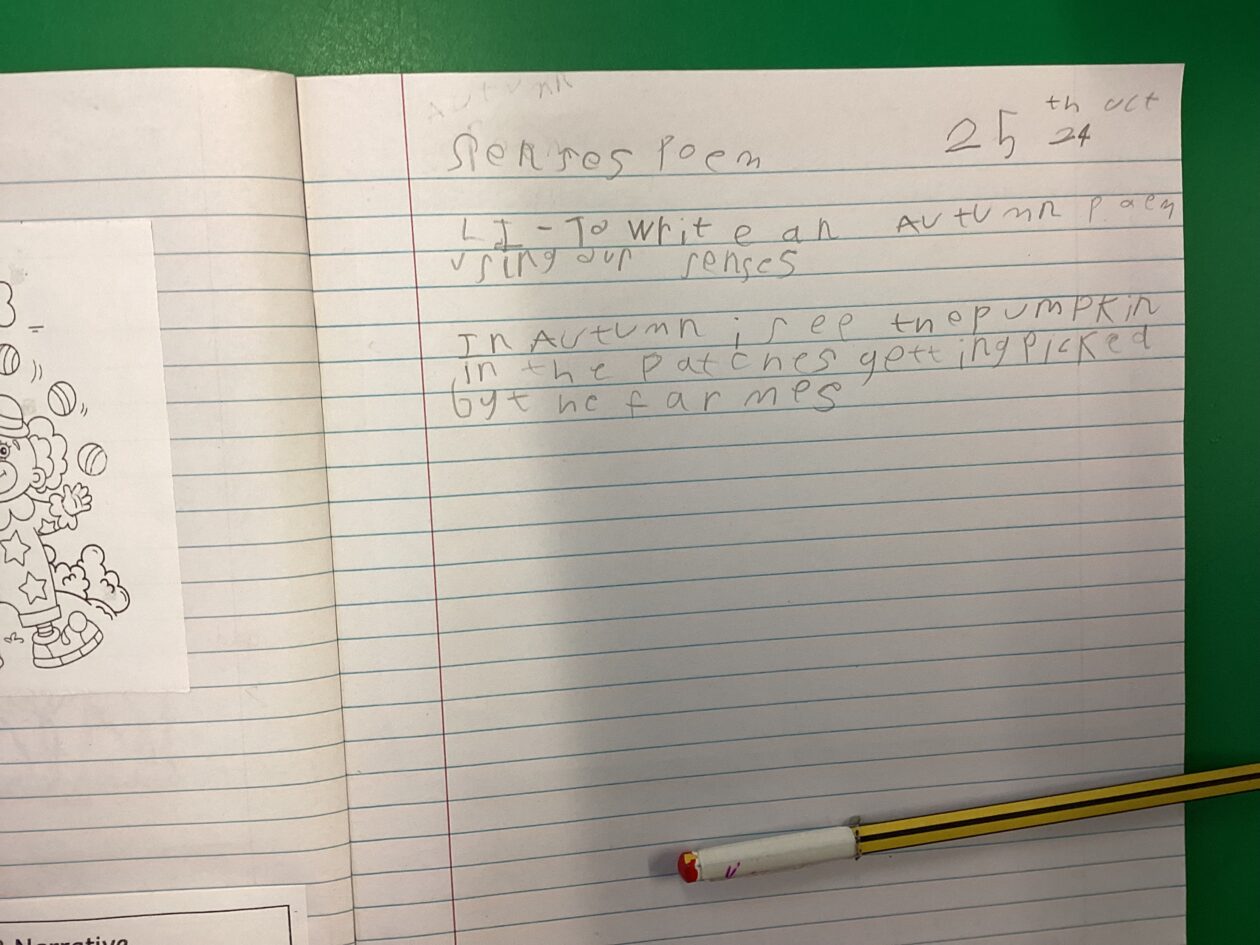 Autumn
Senses Poem
25th oct 24
LI - To write an Autumn poem
using our senses
In Autumn i see the pumpkin
in the patches getting picked
by the farmes
Narrative